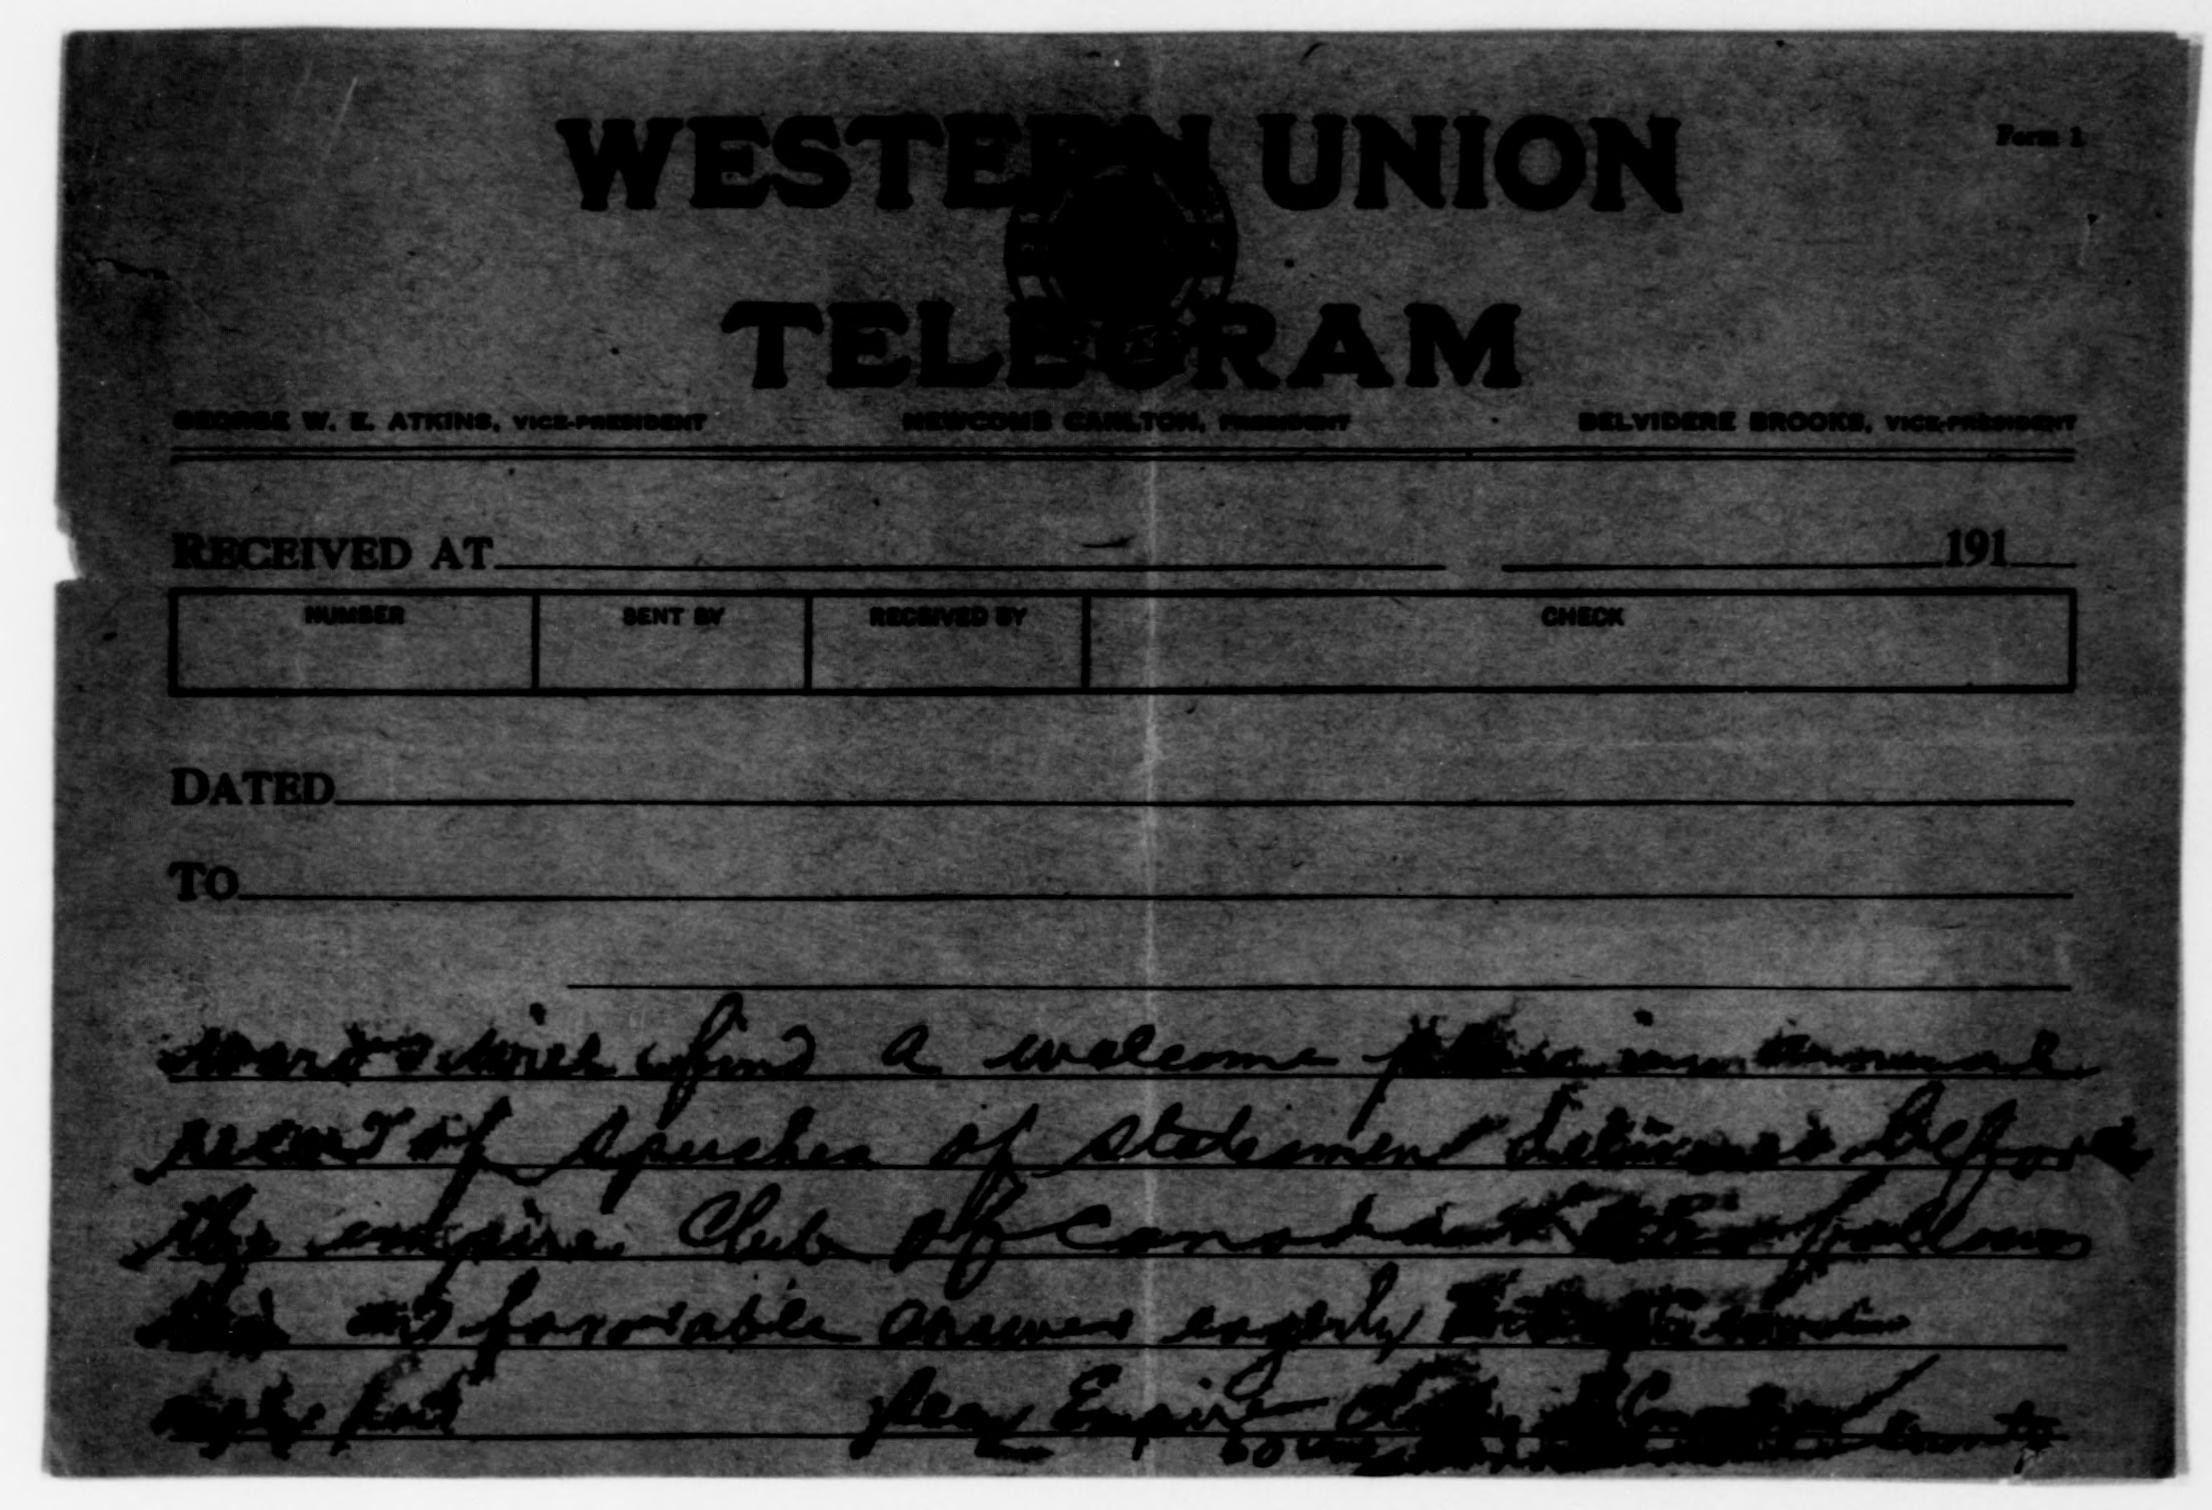 Form 1
WESTERN UNION
TELEGRAM
GEORGE W. E. ATKINS, VICE-PRESIDENT NEWCOMB CARLTON, PRESIDENT BELVIDERE BROOKS, VICE-PRESIDENT
RECEIVED AT 191
NUMBER SENT BY RECEIVED BY CHECK
DATED
TO
will find a welcome place in annual
record of speeches of statesmen delivered before
the empire Club of Canada follow
favorable answer eagerly
reply paid Secy Empire Club of Canada